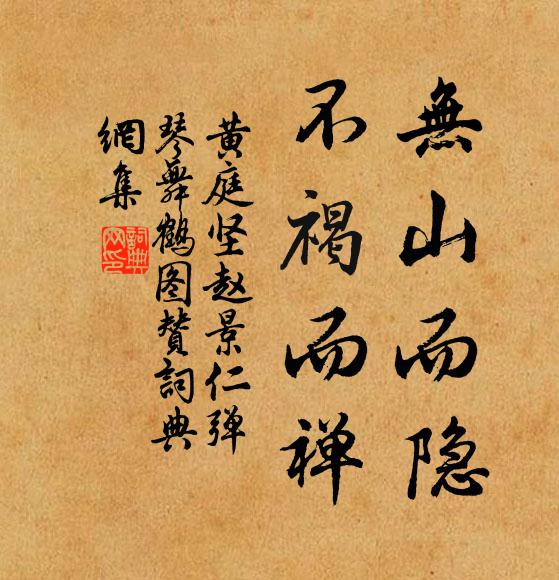 無山而隐
不褐而禅
黄庭坚赵景仁弹
琴舞鹤图赞詞典
網集
詞典网印